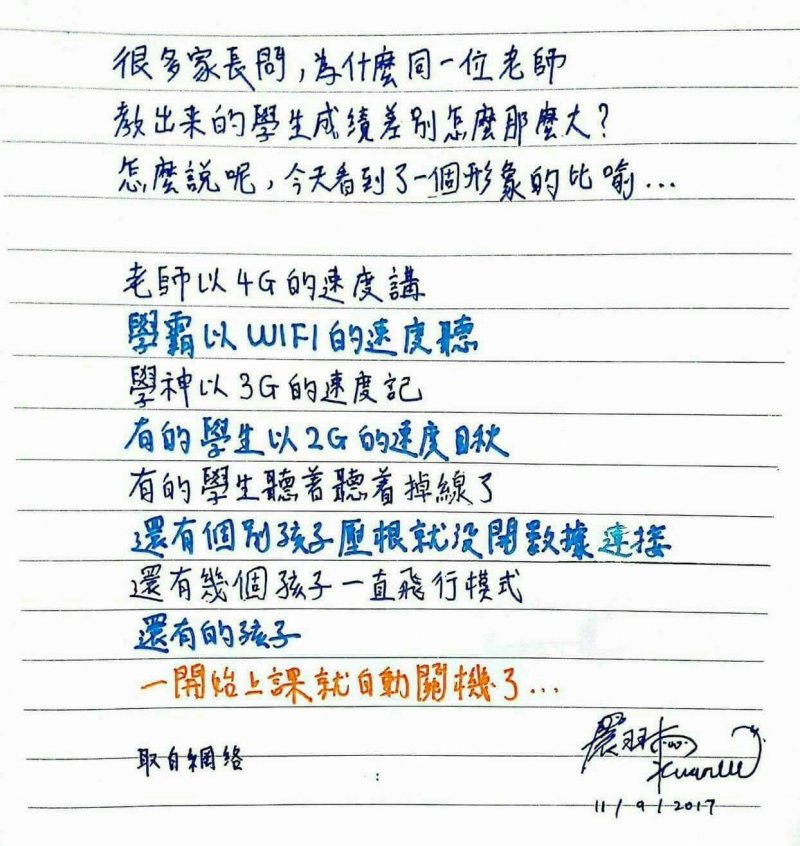 很多家長問,為什麼同一位老師
教出来的學生成績差別怎麼那麼大?
怎麼說呢,今天看到了一個形象的比喻...
老師以4G的速度講
學霸以WIFI的速度聽
學神以3G的速度記
有的學生以2G的速度瞅
有的學生聽着聽着掉線了
還有個別孩子壓根就没開數據連接
還有幾個孩子一直飛行模式
還有的孩子
一開始上課就自動關機了...
取自網络
11/9/2017